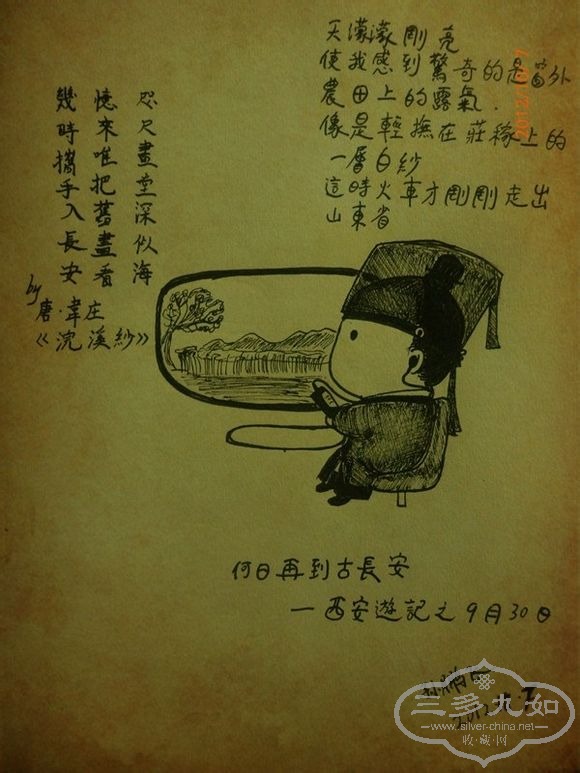 天濛濛剛亮
使我感到驚奇的是窗外
農田上的露氣.
像是輕撫在莊稼上的
一層白紗
這時火車才剛剛走出
山東省
咫尺畫堂深似海
憶來唯把舊畫看
幾時攜手入長安
by
唐·韋庄
《浣溪紗》
何日再到古長安
—西安遊記之9月30日
三多九如
www.silver-china.net
收·藏·网